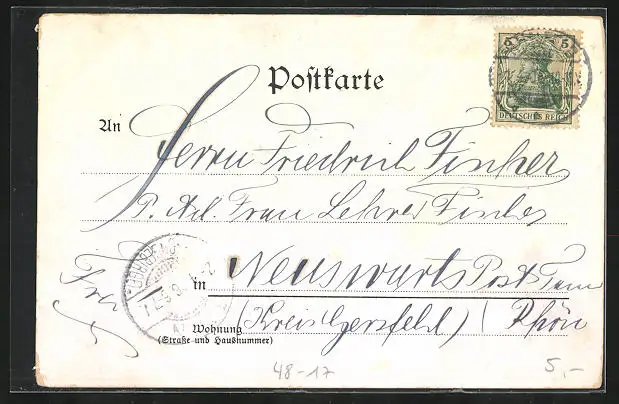 Postkarte
5 5
DEUTSCHES REICH
An Herrn Friedrich Fischer
P. Ad. Frau Lehrer Fischer
in Neuswarts Post Tann
(Kreis Gersfeld) Rhön
Wohnung
(Straße und Hausnummer)
48-17 5,-